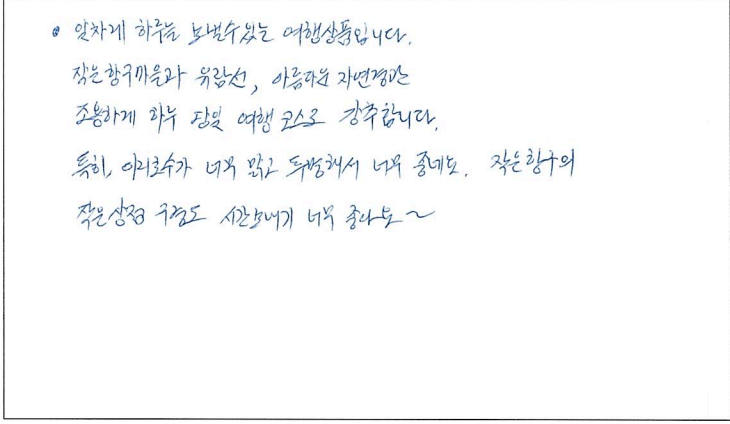 • 알차게 하루를 보낼수있는 여행상품입니다.
작은항구마을과 유람선, 아름다운 자연경관
조용하게 하루 당일 여행 코스로 강추합니다.
특히, 이리호수가 너무 맑고 투명해서 너무 좋네요. 작은항구의
작은상점 구경도 시간보내기 너무 좋아요~